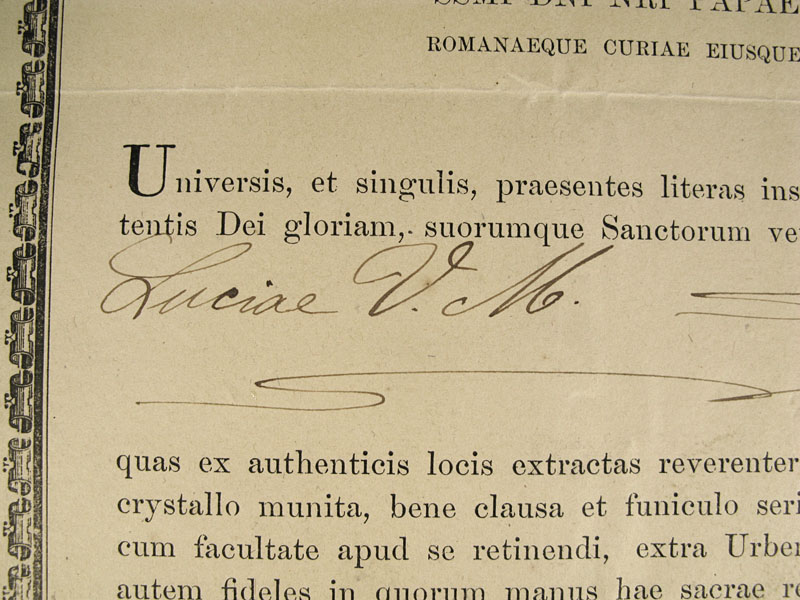 SSMI DNI NRI PAPAE
ROMANAEQUE CURIAE EIUSQUE
Universis, et singulis, praesentes literas ins
tentis Dei gloriam, suorumque Sanctorum ve
Luciae V. M.
quas ex authenticis locis extractas reverenter
crystallo munita, bene clausa et funiculo seri
cum facultate apud se retinendi, extra Urbem
autem fideles in quorum manus hae sacrae re